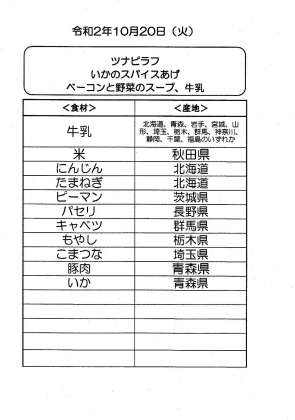 令和2年10月20日（火）
ツナピラフ
いかのスパイスあげ
ベーコンと野菜のスープ、牛乳
＜食材＞ ＜産地＞
牛乳 北海道、青森、岩手、宮城、山
形、埼玉、栃木、群馬、神奈川、
静岡、千葉、福島のいずれか
米 秋田県
にんじん 北海道
たまねぎ 北海道
ピーマン 茨城県
パセリ 長野県
キャベツ 群馬県
もやし 栃木県
こまつな 埼玉県
豚肉 青森県
いか 青森県